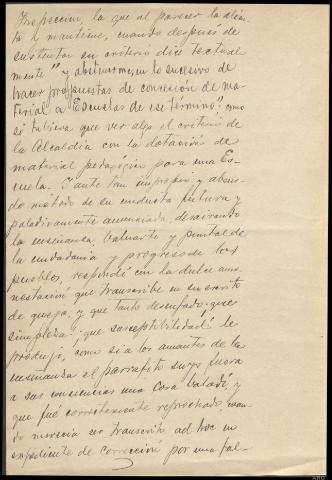 Inspección, la que al parecer la alien-
ta y mantiene, cuando después de
sustentar su criterio dice textual
mente "y abstenerme, en lo sucesivo de
hacer propuestas de concesión de ma-
terial a Escuelas de ese término": como
si tubiera que ver algo el criterio de
la Alcaldía con la dotación de
material pedagógico para una Es-
cuela. Tante tan impropio y absur-
do método de su conducta futura y
paladinamente anunciada, desairando
la enseñanza, baluarte y pental de
la ciudadanía y progreso de los
pueblos, respondí con la dulce amo-
nestación que transcribe en su escrito
de queja, y que tanto desenfado ¡que
simpleza! ¡que susceptibilidad! le
produjo, como si a los amantes de la
enseñanza el parrafito suyo fuera
a sus conciencias una cosa baladí, y
que fué correctamente reprochado, cuan-
do merecía ser transcrito ad hoc en
expediente de corrección por una fal-